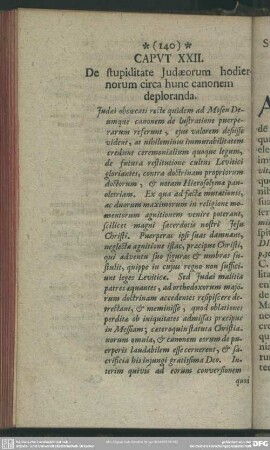 *(140)*
CAPVT XXII.
De stupiditate Judæorum hodier-
norum circa hunc canonem
deploranda.
Judæi obcœcati recte quidem ad Mosen De-
umque canonem de lustratione puerpe-
rarum referunt, ejus valorem desiisse
vident, at nihilominus immutabilitatem
credunt ceremonialium quoque legum,
de futura restitutione cultus Levitici
gloriantes, contra doctrinam propriorum
doctorum, & notam Hierosolyma
Ex qua ad facta mutationis,
ac duorum maximorum in religione mo-
mentorum agnitionem venire poterant,
scilicet magni sacerdotis nostri Jesu
Christi. Puerperas ipsi suas damnant,
neglecta agnitione istac, præcipue Christi,
qui adventu suo figuras & umbras su-
stulit, quippe in cujus regno non suffici-
unt leges Leviticæ. Sed Judæi malitia
patres æquantes, ad orthodoxorum majo-
rum doctrinam accedentes resipiscere de-
trectant, & meminisse, quod oblationes
perditæ ob iniquitates admissas præcipue
in Messiam; cæteroquin statura Christia-
norum omnia, & canonem eorum de pu-
erperis laudabilem esse cernerent, & sa-
crificia his injungi gratissima Deo. In-
terim quivis ad eorum conversionem
quasi